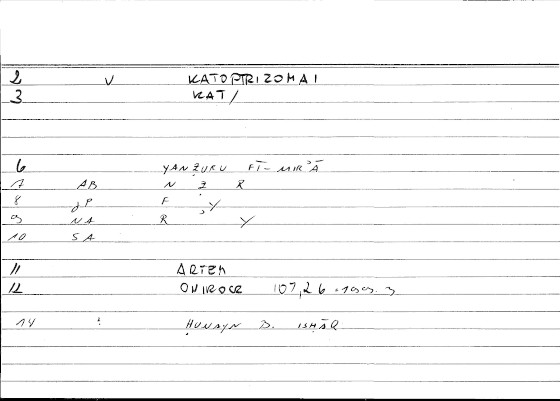 2 V KATOPTRIZOMAI
3 KAT/
6 YANẒURU FĪ-MIRʾĀ
7 AB N Ẓ R
8 gP F ,Y
9 NA R Y
10 SA
11 ARTEM
12 ONIROCR 107,26
14 : ḤUNAYN B. ISḤĀQ